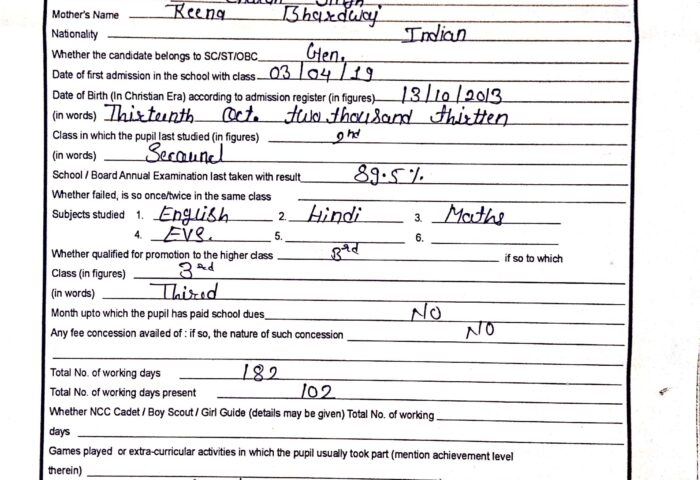 Singh
Mother's Name Reena Bhardwaj
Nationality Indian
Whether the candidate belongs to SC/ST/OBC Gen.
Date of first admission in the school with class 03/04/19
Date of Birth (In Christian Era) according to admission register (in figures) 13/10/2013
(in words) Thirteenth Oct. two thousand thirtten
Class in which the pupil last studied (in figures) 2nd
(in words) Secound
School / Board Annual Examination last taken with result 89.5%
Whether failed, is so once/twice in the same class
Subjects studied 1. English 2. Hindi 3. Maths
4. EVS. 5. 6.
Whether qualified for promotion to the higher class 3rd if so to which
Class (in figures) 3rd
(in words) Thired
Month upto which the pupil has paid school dues NO
Any fee concession availed of : if so, the nature of such concession NO
Total No. of working days 182
Total No. of working days present 102
Whether NCC Cadet / Boy Scout / Girl Guide (details may be given) Total No. of working
days
Games played or extra-curricular activities in which the pupil usually took part (mention achievement level
therein)